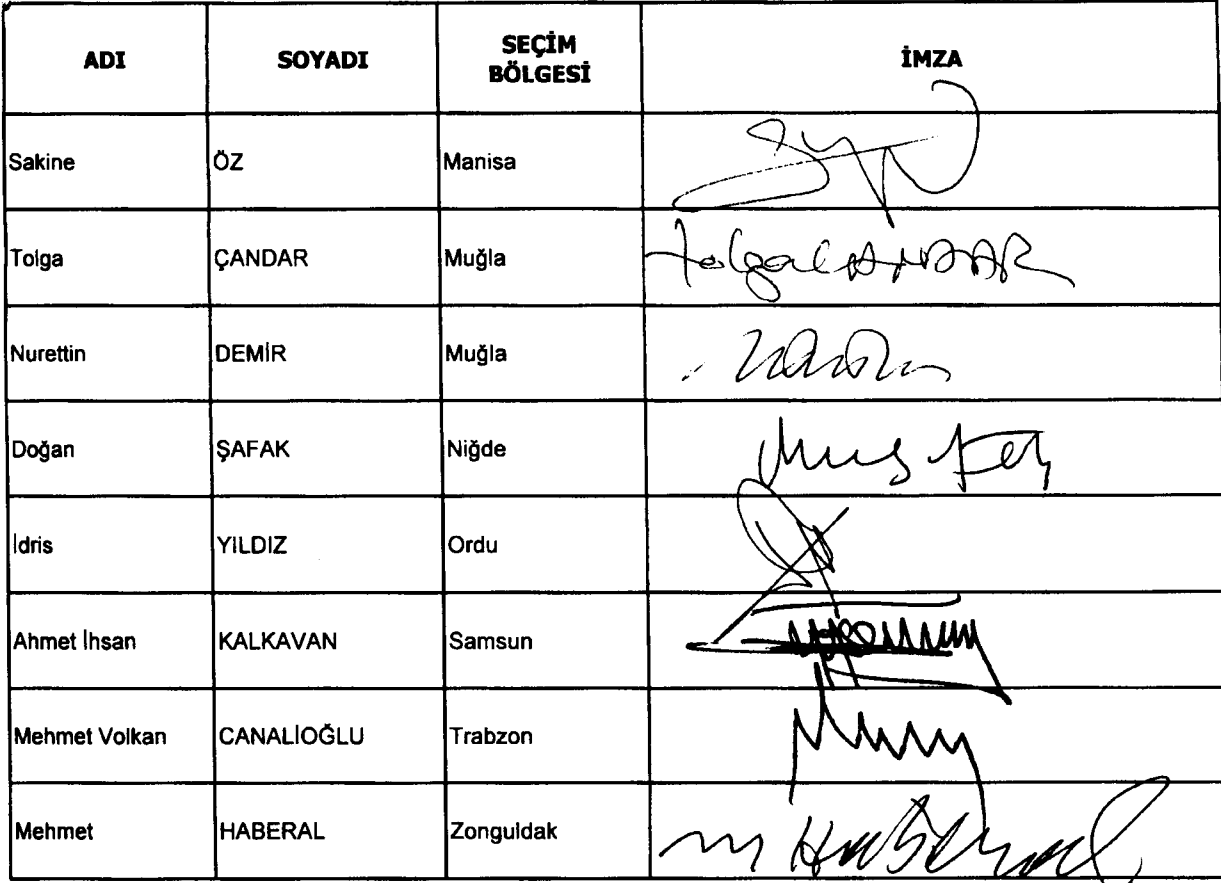 ADI SOYADI SEÇİM BÖLGESİ İMZA
Sakine ÖZ Manisa
Tolga ÇANDAR Muğla Tolga ÇANDAR
Nurettin DEMİR Muğla
Doğan ŞAFAK Niğde
İdris YILDIZ Ordu
Ahmet İhsan KALKAVAN Samsun
Mehmet Volkan CANALİOĞLU Trabzon
Mehmet HABERAL Zonguldak m Haberal